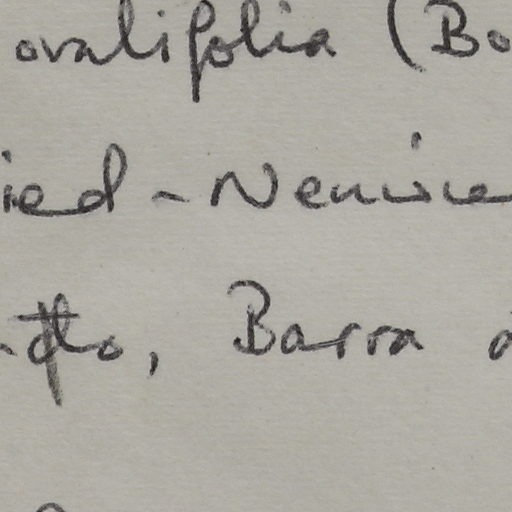 ovalifolia (Bo
ied - Neuwie
Barra